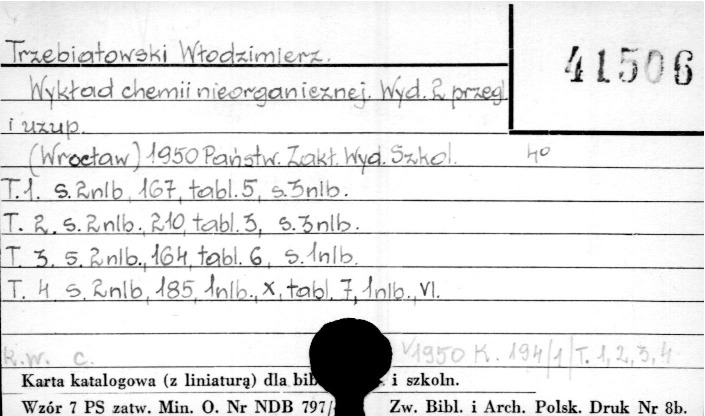 Trzebiatowski Włodzimierz.
41506
Wykład chemii nieorganicznej. Wyd. 2 przegl
i uzup.
(Wrocław) 1950 Państw. Zakł. Wyd. Szkol. 4°
T.1. s. 2nlb, 167, tabl. 5, s. 3nlb.
T. 2. s. 2nlb., 210, tabl. 3, s. 3nlb.
T. 3. s. 2nlb., 164, tabl. 6, s. 1nlb.
T. 4 s. 2nlb, 185, 1nlb., X, tabl. 7, 1nlb., VI.
k.w. c. V 1950 K. 194/1/T. 1, 2, 3, 4
Karta katalogowa (z liniaturą) dla i szkoln.
Wzór 7 PS zatw. Min. O. Nr NDB 797/ Zw. Bibl. i Arch. Polsk. Druk Nr 8b.